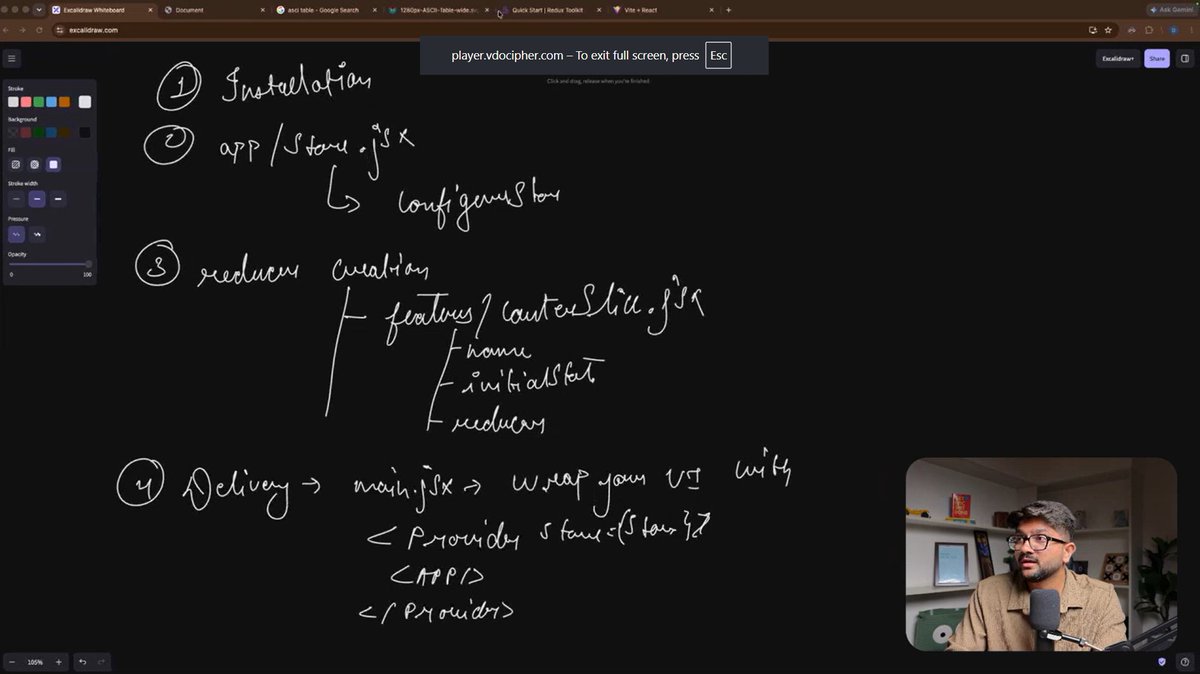 Excalidraw Whiteboard
Document
asci table - Google Search
1280px-ASCII-Table-wide.sv
Quick Start | Redux Toolkit
Vite + React
Ask Gemini
excalidraw.com
player.vdocipher.com – To exit full screen, press Esc
Click and drag, release when you're finished
Excalidraw+
Share
Stroke
Background
Fill
Stroke width
Pressure
Opacity
0 100
1 Installation
2 app/store.jsx
configureStore
3 reducer creation
features/counterSlice.jsx
name
initialState
reducers
4 Delivery → main.jsx → Wrap your UI with
<Provider store={store}>
<APP/>
</Provider>
105%